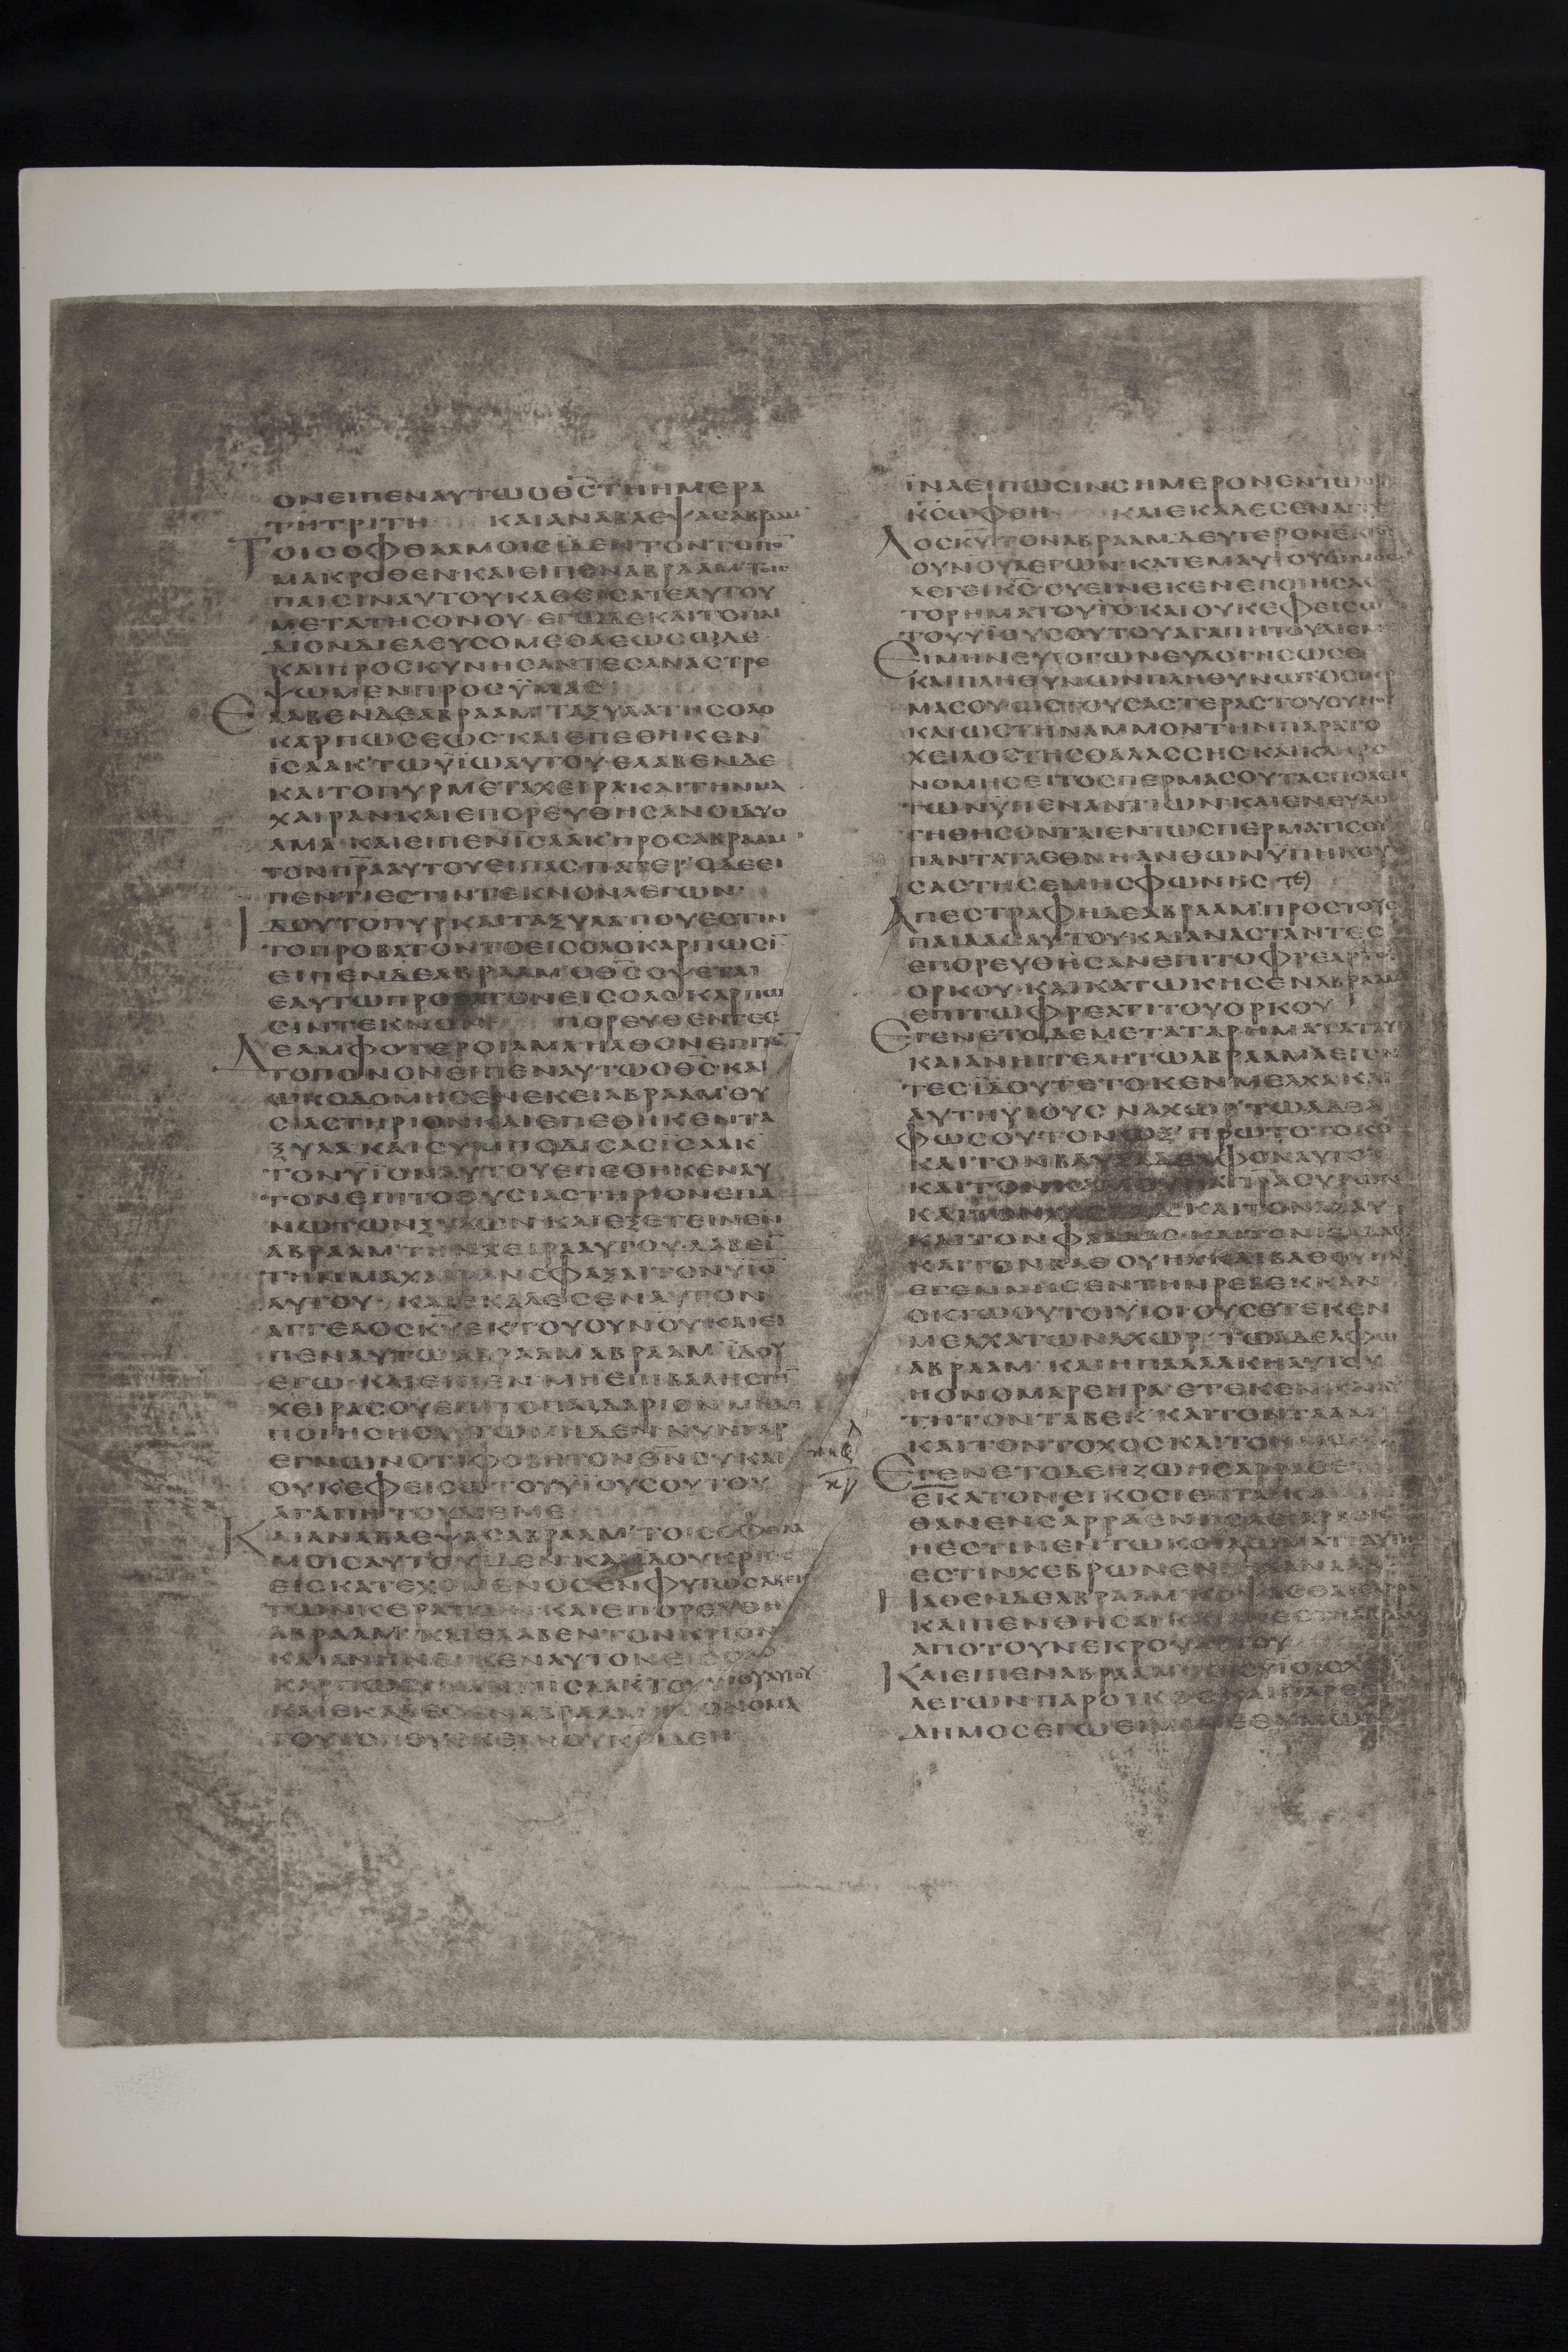 ΟΝΕΙΠΕΝΑΥΤΩΟΘ̅Σ̅ΤΗΗΜΕΡΑ
ΤΗΤΡΙΤΗ ΚΑΙΑΝΑΒΛΕΨΑΣΑΒΡΑΑΜ
ΤΟΙΣΟΦΘΑΛΜΟΙΣΪΔΕΝΤΟΝΤΟΠΟ̅
ΜΑΚΡΟΘΕΝ·ΚΑΙΕΙΠΕΝΑΒΡΑΑΜʼΤΟΙΣ
ΠΑΙΣΙΝΑΥΤΟΥΚΑΘΕΙΣΑΤΕΑΥΤΟΥ
ΜΕΤΑΤΗΣΟΝΟΥ·ΕΓΩΔΕΚΑΙΤΟΠΑΙ
ΔΙΟΝΔΙΕΛΕΥΣΟΜΕΘΑΕΩΣΩΔΕ·
ΚΑΙΠΡΟΣΚΥΝΗΣΑΝΤΕΣΑΝΑΣΤΡΕ
ΨΩΜΕΝΠΡΟΣΫΜΑΣ
ΕΛΑΒΕΝΔΕΑΒΡΑΑΜʼΤΑΞΥΛΑΤΗΣΟΛΟ
ΚΑΡΠΩΣΕΩΣ·ΚΑΙΕΠΕΘΗΚΕΝ
ΪΣΑΑΚʼΤΩΥΪΩΑΥΤΟΥ·ΕΛΑΒΕΝΔΕ
ΚΑΙΤΟΠΥΡΜΕΤΑΧΕΙΡΑΚΑΙΤΗΝΜΑ
ΧΑΙΡΑΝ·ΚΑΙΕΠΟΡΕΥΘΗΣΑΝΟΙΔΥΟ
ΑΜΑ·ΚΑΙΕΙΠΕΝΪΣΑΑΚʼΠΡΟΣΑΒΡΑΑΜ
ΤΟΝΠ̅Ρ̅Α̅ΑΥΤΟΥΕΙΠΑΣΠΑΤΕΡʼΟΔΕΕΙ
ΠΕΝΤΙΕΣΤΙΝΤΕΚΝΟΝΛΕΓΩΝ·
ΙΔΟΥΤΟΠΥΡΚΑΙΤΑΞΥΛΑΠΟΥΕΣΤΙΝ
ΤΟΠΡΟΒΑΤΟΝΤΟΕΙΣΟΛΟΚΑΡΠΩΣΙ̅
ΕΙΠΕΝΔΕΑΒΡΑΑΜʼΟΘ̅Σ̅ΟΨΕΤΑΙ
ΕΑΥΤΩΠΡΟΒΑΤΟΝΕΙΣΟΛΟΚΑΡΠΩ
ΣΙΝΤΕΚΝΟΝ ΠΟΡΕΥΘΕΝΤΕΣ
ΔΕΑΜΦΟΤΕΡΟΙΑΜΑΗΛΘΟΝΕΠΙΤΟ̅
ΤΟΠΟΝΟΝΕΙΠΕΝΑΥΤΩΟΘ̅Σ̅ΚΑΙ
ΩΚΟΔΟΜΗΣΕΝΕΚΕΙΑΒΡΑΑΜʼΘΥ
ΣΙΑΣΤΗΡΙΟΝΚΑΙΕΠΕΘΗΚΕΝΤΑ
ΞΥΛΑΚΑΙΣΥΜΠΟΔΙΣΑΣΪΣΑΑΚ
ΤΟΝΥΪΟΝΑΥΤΟΥΕΠΕΘΗΚΕΝΑΥ
ΤΟΝΕΠΙΤΟΘΥΣΙΑΣΤΗΡΙΟΝΕΠΑ
ΝΩΤΩΝΞΥΛΩΝ·ΚΑΙΕΞΕΤΕΙΝΕΝ
ΑΒΡΑΑΜʼΤΗΝΧΕΙΡΑΑΥΤΟΥΛΑΒΕΙ̅
ΤΗΝΜΑΧΑΙΡΑΝΣΦΑΞΑΙΤΟΝΥΪΟ̅
ΑΥΤΟΥ· ΚΑΙΕΚΑΛΕΣΕΝΑΥΤΟΝ
ΑΓΓΕΛΟΣΚ̅Υ̅ΕΚΤΟΥΟΥΝΟΥΚΑΙΕΙ
ΠΕΝΑΥΤΩΑΒΡΑΑΜΑΒΡΑΑΜʼΪΔΟΥ
ΕΓΩ·ΚΑΙΕΙΠΕΝ·ΜΗΕΠΙΒΑΛΗΣΤΗ̅
ΧΕΙΡΑΣΟΥΕΠΙΤΟΠΑΙΔΑΡΙΟΝ
ΠΟΙΗΣΗΣΑΥΤΩΜΗΔΕΝΝΥΝΓΑΡ
ΕΓΝΩΝΟΤΙΦΟΒΗΤΟΝΘ̅Ν̅ΣΥΚΑΙ
ΟΥΚΕΦΕΙΣΩΤΟΥΥΪΟΥΣΟΥΤΟΥ
ΑΓΑΠΗΤΟΥΔΙΕΜΕ
ΚΑΙΑΝΑΒΛΕΨΑΣΑΒΡΑΑΜʼΤΟΙΣΟΦΘΑΛ
ΜΟΙΣΑΥΤΟΥΪΔΕΝΚΑΙΪΔΟΥΚΡΙΟΣ
ΕΙΣΚΑΤΕΧΟΜΕΝΟΣΕΝΦΥΤΩΣΑΒΕΚ
ΤΩΝΚΕΡΑΤΩΝ·ΚΑΙΕΠΟΡΕΥΘΗ
ΑΒΡΑΑΜʼΚΑΙΕΛΑΒΕΝΤΟΝΚΡΙΟΝ
ΚΑΙΑΝΗΝΕΓΚΕΝΑΥΤΟΝΕΙΣΟΛΟ
ΚΑΡΠΩΣΙΝΑΝΤΙΪΣΑΑΚΤΟΥΥΪΟΥΑΥΤΟΥ
ΚΑΙΕΚΑΛΕΣΕΝΑΒΡΑΑΜΤΟΟΝΟΜΑ
ΤΟΥΤΟΠΟΥΕΚΕΙΝΟΥΚ̅Σ̅ΪΔΕΝ
ΪΝΑΕΙΠΩΣΙΝΣΗΜΕΡΟΝΕΝΤΩΟΡΕΙ
Κ̅Σ̅ΩΦΘΗ ΚΑΙΕΚΑΛΕΣΕΝΑΓΓΕ
ΛΟΣΚ̅Υ̅ΤΟΝΑΒΡΑΑΜΔΕΥΤΕΡΟΝΕΚΤΟΥ
ΟΥΝΟΥΛΕΓΩΝ·ΚΑΤΕΜΑΥΤΟΥΩΜΟΣΑ
ΛΕΓΕΙΚ̅Σ̅ΟΥΕΙΝΕΚΕΝΕΠΟΙΗΣΑΣ
ΤΟΡΗΜΑΤΟΥΤΟΚΑΙΟΥΚΕΦΕΙΣΩ
ΤΟΥΥΪΟΥΣΟΥΤΟΥΑΓΑΠΗΤΟΥΔΙΕΜΕ
ΕΙΜΗΝΕΥΛΟΓΩΝΕΥΛΟΓΗΣΩΣΕ
ΚΑΙΠΛΗΘΥΝΩΝΠΛΗΘΥΝΩΤΟΣΠΕΡ
ΜΑΣΟΥ·ΩΣΤΟΥΣΑΣΤΕΡΑΣΤΟΥΟΥΝΟΥ
ΚΑΙΩΣΤΗΝΑΜΜΟΝΤΗΝΠΑΡΑΤΟ
ΧΕΙΛΟΣΤΗΣΘΑΛΑΣΣΗΣΚΑΙΚΛΗΡΟ
ΝΟΜΗΣΕΙΤΟΣΠΕΡΜΑΣΟΥΤΑΣΠΟΛΕΙΣ
ΤΩΝΫΠΕΝΑΝΤΙΩΝ·ΚΑΙΕΝΕΥΛΟ
ΓΗΘΗΣΟΝΤΑΙΕΝΤΩΣΠΕΡΜΑΤΙΣΟΥ
ΠΑΝΤΑΤΑΕΘΝΗΑΝΘΩΝΫΠΗΚΟΥ
ΣΑΣΤΗΣΕΜΗΣΦΩΝΗΣ
ΑΠΕΣΤΡΑΦΗΔΕΑΒΡΑΑΜʼΠΡΟΣΤΟΥΣ
ΠΑΙΔΑΣΑΥΤΟΥΚΑΙΑΝΑΣΤΑΝΤΕΣ
ΕΠΟΡΕΥΘΗΣΑΝΕΠΙΤΟΦΡΕΑΡ
ΟΡΚΟΥ·ΚΑΙΚΑΤΩΚΗΣΕΝΑΒΡΑΑΜ
ΕΠΙΤΩΦΡΕΑΤΙΤΟΥΟΡΚΟΥ
ΕΓΕΝΕΤΟΔΕΜΕΤΑΤΑΡΗΜΑΤΑΤΑΥΤΑ
ΚΑΙΑΝΗΓΓΕΛΗΤΩΑΒΡΑΑΜΛΕΓΟΝ
ΤΕΣΪΔΟΥΤΕΤΟΚΕΝΜΕΛΧΑΚΑΙ
ΑΥΤΗΥΙΟΥΣ ΝΑΧΩΡʼΤΩΑΔΕΛ
ΦΩΣΟΥΤΟΝΩΞʼΠΡΩΤΟΤΟΚΟ̅
ΚΑΙΤΟΝΒΑΥΞΑΔΕΛΦΟΝΑΥΤΟΥ
ΚΑΙΤΟΝΚΑΜΟΥΗΛΠ̅Ρ̅Α̅ΣΥΡΩΝ
ΚΑΙΤΟΝ ΚΑΙΤΟΝΑΖΑΥ
ΚΑΙΤΟΝΦΑΛΔΑΣ·ΚΑΙΤΟΝ
ΚΑΙΤΟΝΒΑΘΟΥΗΛʼΚΑΙΒΑΘΟΥΗΛ
ΕΓΕΝΝΗΣΕΝΤΗΝΡΕΒΕΚΚΑΝ
ΟΚΤΩΟΥΤΟΙΥΙΟΙΟΥΣΕΤΕΚΕΝ
ΜΕΛΧΑΤΩΝΑΧΩΡʼΤΩΑΔΕΛΦΩ
ΑΒΡΑΑΜʼΚΑΙΗΠΑΛΛΑΚΗΑΥΤΟΥ
ΗΟΝΟΜΑΡΕΗΡΑʼΕΤΕΚΕΝΚΑΙΑΥ
ΤΗΤΟΝΤΑΒΕΚʼΚΑΙΤΟΝΤΑΑΜ
ΚΑΙΤΟΝΤΟΧΟΣΚΑΙΤΟΝ
ΕΓΕΝΕΤΟΔΕΗΖΩΗΣΑΡΡΑΣΕΤΗ
ΕΚΑΤΟΝΕΙΚΟΣΙΕΠΤΑΚΑΙΑΠΕ
ΘΑΝΕΝΣΑΡΡΑΕΝΠΟΛΕΙΑΡΒΟΚ
ΗΕΣΤΙΝΕΝΤΩΚΟΙΛΩΜΑΤΙΑΥΤΗ
ΕΣΤΙΝΧΕΒΡΩΝΕΝΓΗΧΑΝΑΑΝ
ΗΛΘΕΝΔΕΑΒΡΑΑΜʼΚΟΨΑΣΘΑΙΣΑΡΡΑ̅
ΚΑΙΠΕΝΘΗΣΑΙ·ΚΑΙΑΝΕΣΤΗΑΒΡΑΑΜ
ΑΠΟΤΟΥΝΕΚΡΟΥΑΥΤΟΥ
ΚΑΙΕΙΠΕΝΑΒΡΑΑΜΤΟΙΣΥΙΟΙΣΧΕΤ
ΛΕΓΩΝΠΑΡΟΙΚΟΣΚΑΙΠΑΡΕΠΙ
ΔΗΜΟΣΕΓΩΕΙΜΙΜΕΘΥΜΩΝ